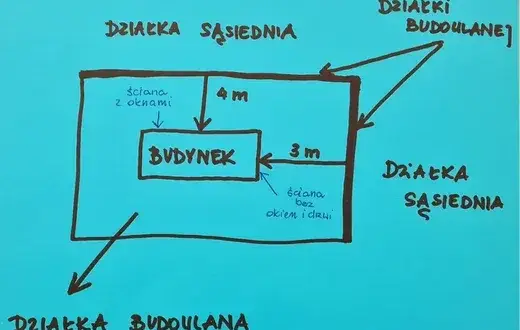 DZIAŁKI
BUDOWLANEJ
DZIAŁKA SĄSIEDNIA
ściana
z oknami
4m
BUDYNEK
3m
DZIAŁKA
SĄSIEDNIA
ściana
bez
okien i drzwi
DZIAŁKA BUDOWLANA